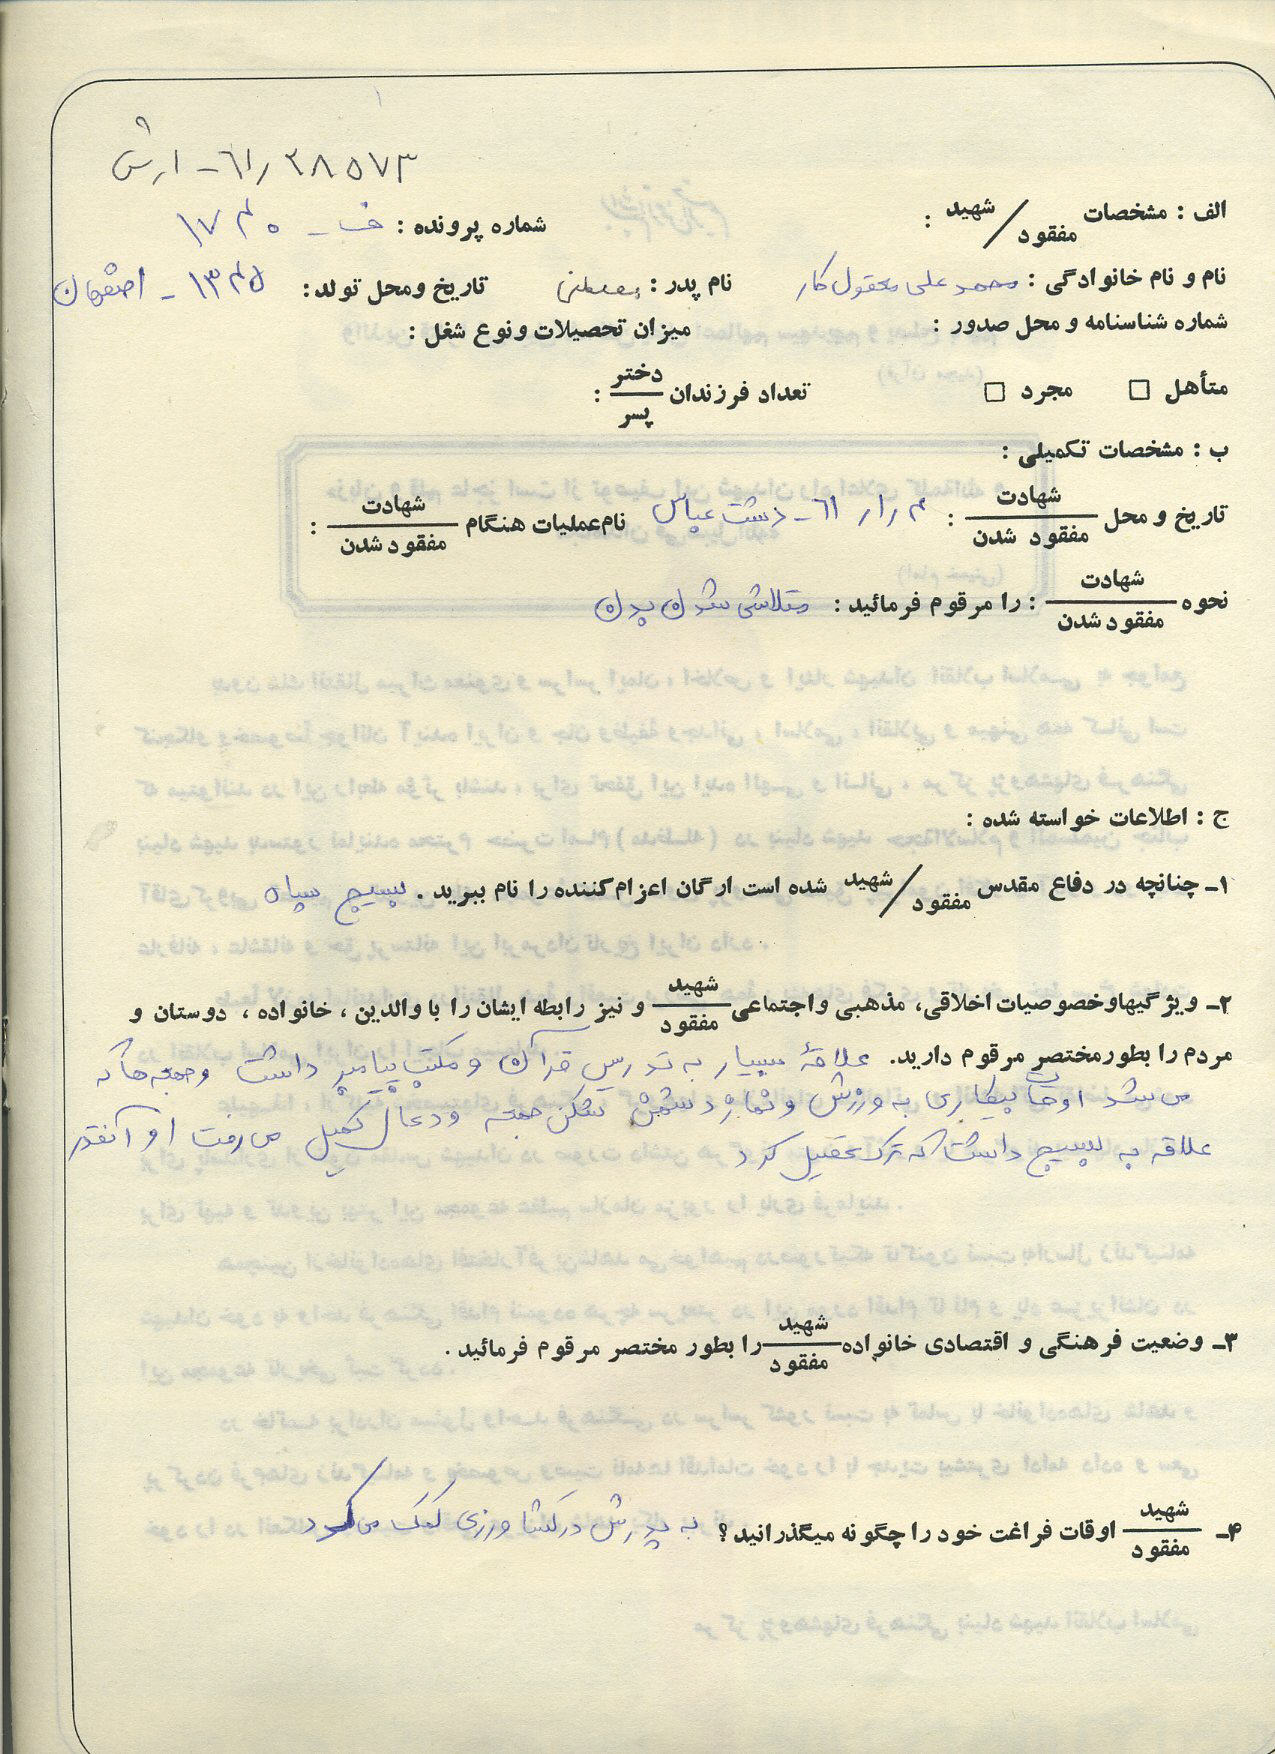 ۶۱/۲۸۵۷۳ - ارش
الف : مشخصات شهید / مفقود : شماره پرونده : ف - ۱۷۴۰
نام و نام خانوادگی : محمد علی معقول کار نام پدر : مصطفی تاریخ ومحل تولد : ۱۳۴۵ - اصفهان
شماره شناسنامه و محل صدور : میزان تحصیلات ونوع شغل :
متأهل □ مجرد □ تعداد فرزندان دختر / پسر :
ب : مشخصات تکمیلی :
تاریخ و محل شهادت / مفقود شدن : ۶۱/۱/۴ - دشت عباس نام عملیات هنگام شهادت / مفقود شدن :
نحوه شهادت / مفقود شدن : را مرقوم فرمائید : متلاشی شدن بدن
ج : اطلاعات خواسته شده :
۱ـ چنانچه در دفاع مقدس شهید / مفقود شده است ارگان اعزام کننده را نام ببرید . بسیج سپاه
۲ـ ویژگیهاوخصوصیات اخلاقی، مذهبی واجتماعی شهید / مفقود و نیز رابطه ایشان را با والدین ، خانواده ، دوستان و
مردم را بطورمختصر مرقوم دارید. علاقهٔ بسیار به تدریس قرآن و مکتب پیامبر داشت وجمعه ها که
می شد او جای بیکاری به ورزش و نماز دشمن شکن جمعه ودعای کمیل می رفت او آنقدر
علاقه به بسیج داشت که ترک تحصیل کرد
۳ـ وضعیت فرهنگی و اقتصادی خانواده شهید / مفقود را بطور مختصر مرقوم فرمائید .
۴ـ شهید / مفقود اوقات فراغت خود را چگونه میگذرانید ؟ به پدرش در کشاورزی کمک می کرد